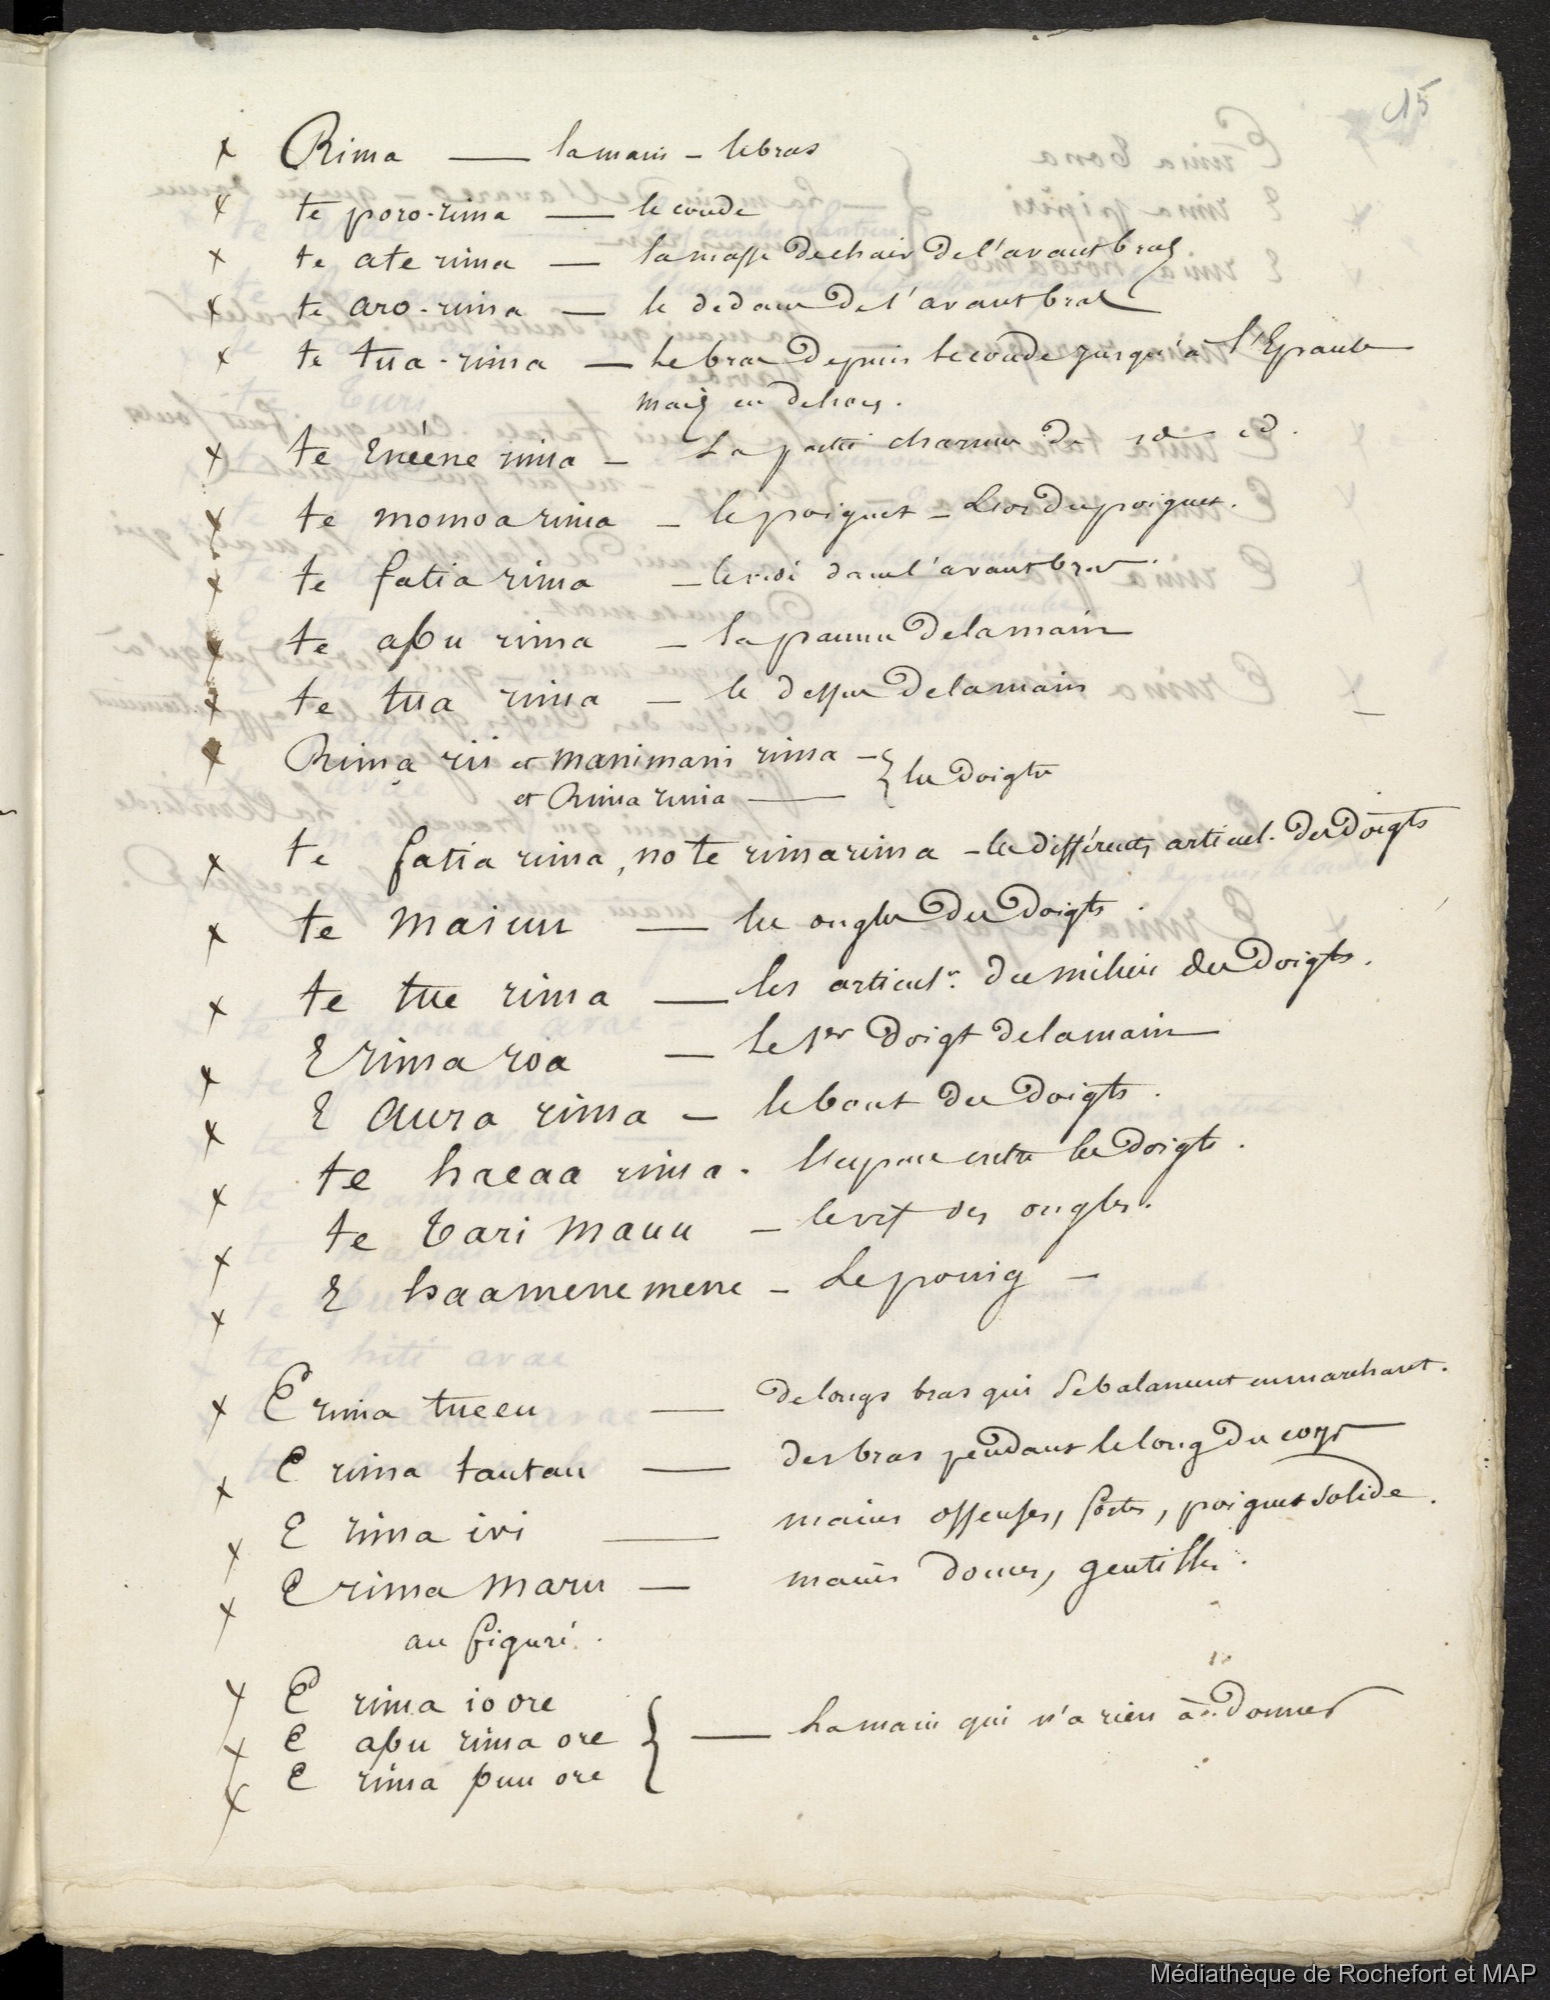 15
x Rima — la main - le bras
x te poro-rima — le coude
x te ate rima — la masse de chair de l'avant bras
x te aro-rima — le dedans de l'avant bras
x te tua-rima — le bras depuis le coude jusqu'à l'Epaule
mais en dehors.
x te Enéene rima - La partie charnue de id id.
x te momoa rima - le poignet - L'os du poignet.
x te fatia rima - le dans l'avant bras.
x te apu rima - la paume de la main
x te tua rima - le dessus de la main
x Rima rii et manimani rima - } les doigts
et Rima rima —
x te fatia rima, no te rimarima - les différents articul. des doigts
x te maiuu — les ongles des doigts
x te tue rima — les articul.ns du milieu des doigts.
x E rima roa — le 1er doigt de la main
x E aura rima - le bout des doigts.
x te haeaa rima - l'espace entre les doigts.
x te tari mauu - le vif des ongles.
x E haamenemene - Le poing -
x E rima tueeu — de longs bras qui se balancent en marchant.
x E rima tautau — des bras pendant le long du corps
x E rima ivi — mains osseuses, fortes, poignet solide.
x E rima maru — mains douces, gentilles.
au figuré.
x E rima io ore
x E apu rima ore } — La main qui n'a rien à donner
x E rima puu ore
Médiathèque de Rochefort et MAP